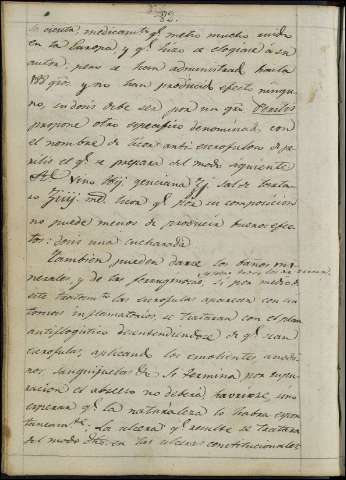 82.
la cicuta, medicamto. qe. metio mucho ruido
en la Europa, y qe. hizo se elogiase à su
autor, pero se han administrado hasta
188 gros. y no han producido efecto ningu-
no, su dosis debe ser por un gro.
propone otro especifico denominado con
el nombre de licor anti-escrofuloso de
el qe. se prepara del modo siguiente
Vino genciana sal de tarta-
ro licor qe. por su composicion
no puede menos de producir buenos efec-
tos: dosis una cucharada
Tambien pueden darse los baños mi-
nerales, y de las ferruginosas. Si por medio de
este tratamto. las escrofulas aparecen con sin-
tomas inflamatorios, se trataran con el plan
antiflogistico desentendiendose de qe. sean
escrofulas, aplicando los emolientes, anodi-
nos, sanguijuelas &. Si termina por supu-
racion el absceso no deberà havrirse, sino
esperar qe. la naturaleza lo habra espon-
taneamte. La ulcera qe. resulte se tratarà
del modo dho. en las ulceras constitucionales